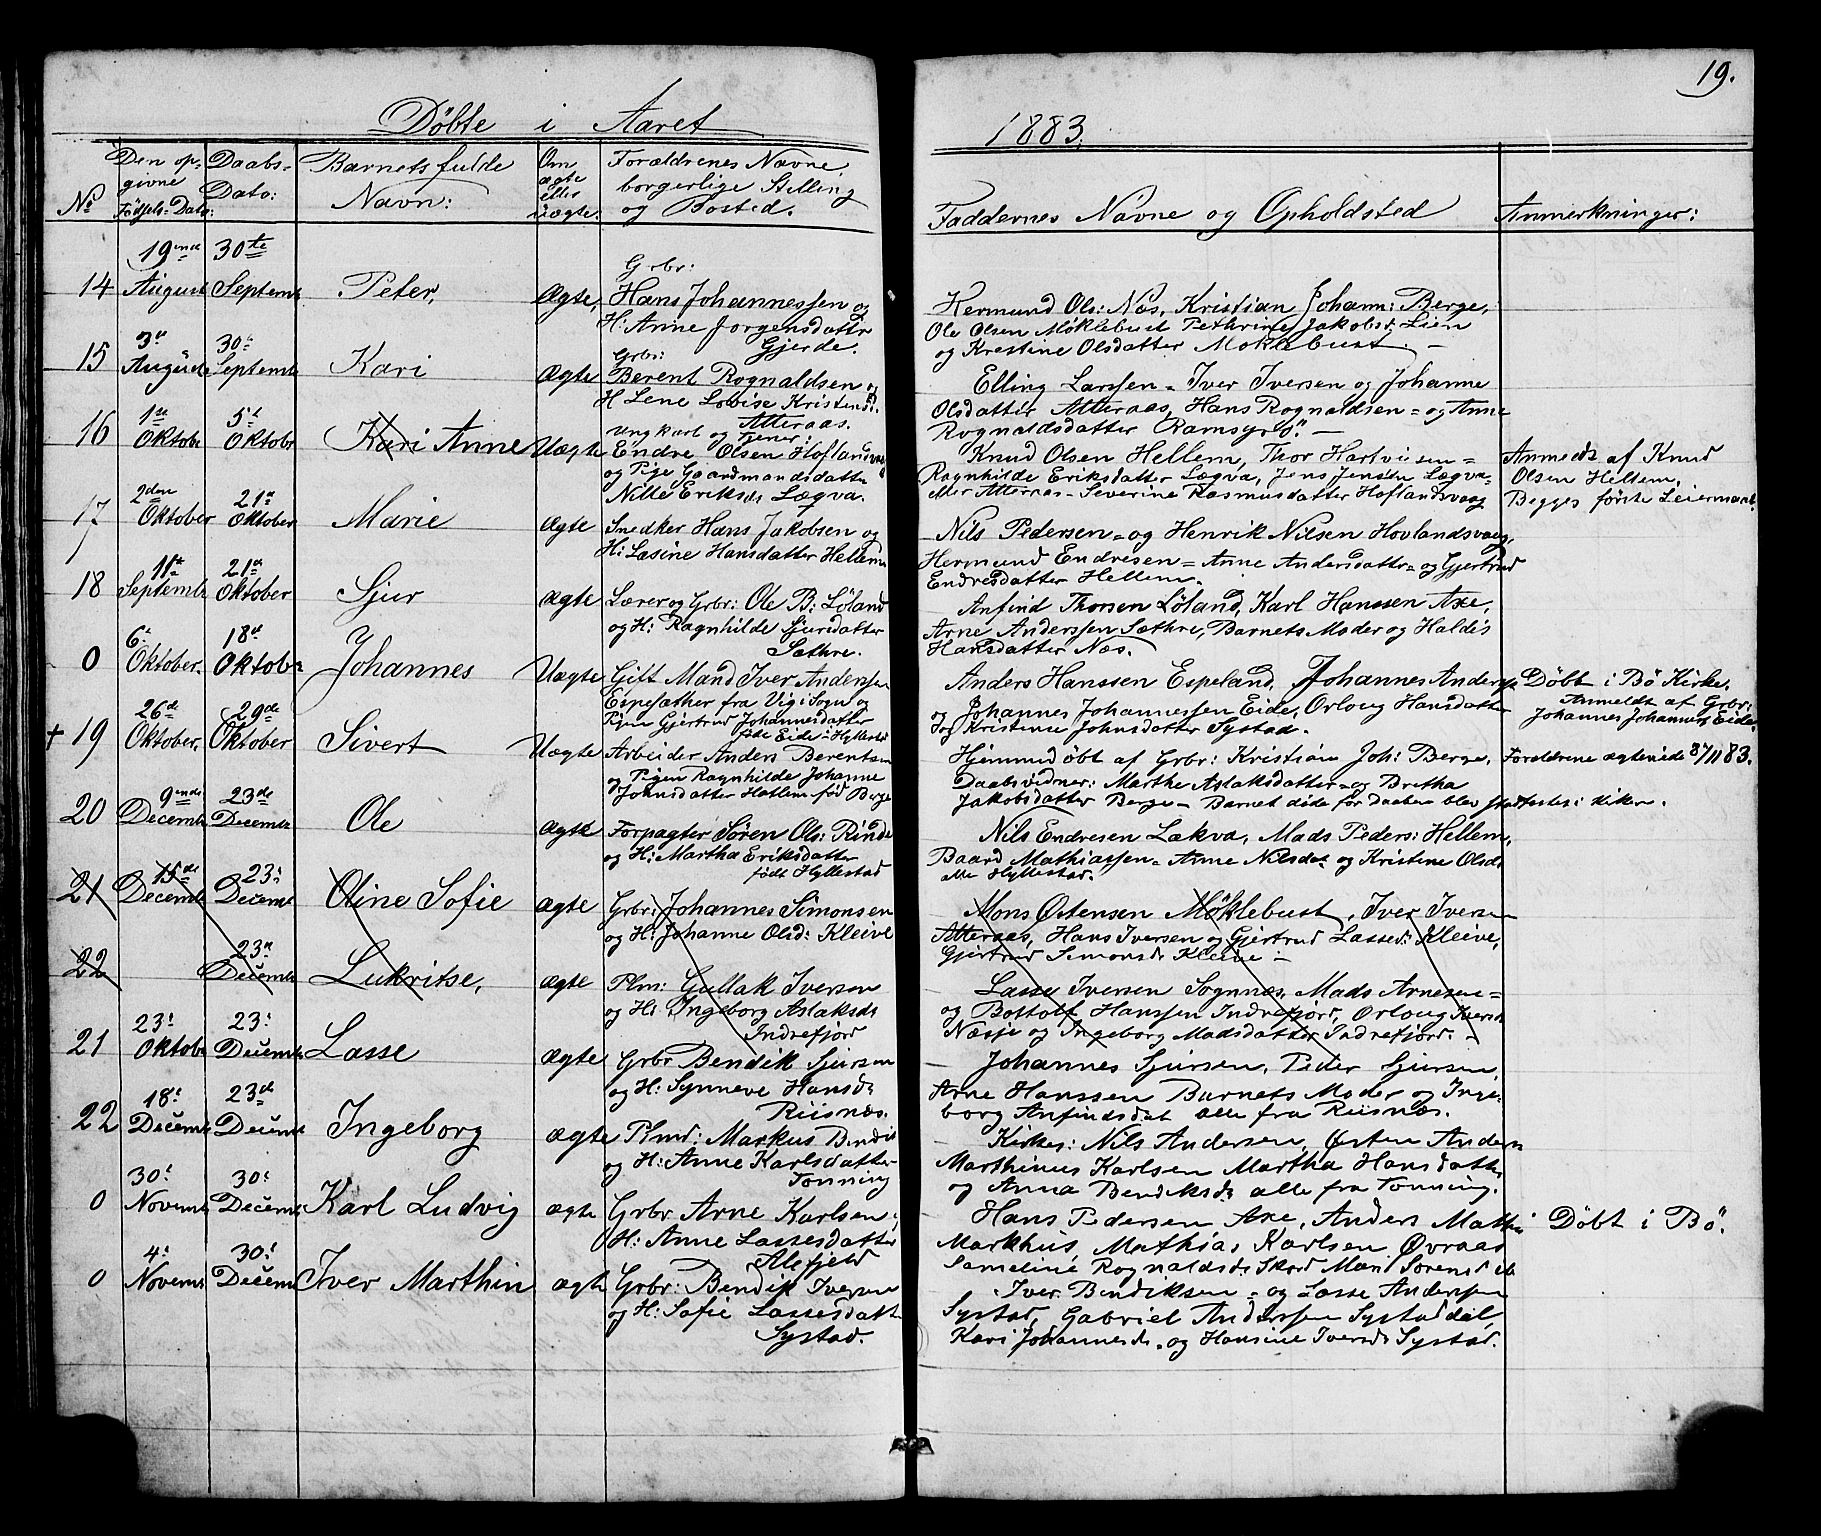 19.
Döbte i Aaret 1883.
No
Den op-
givne
Födsels-Dato:
Daabs-
Dato:
Barnets fulde
Navn:
Om
ægte
eller
uægte.
Forældrenes Navne
borgerlige Stilling
og Bosted.
Faddernes Navne og Opholdsted
Anmerkninger:
14
19ende
August
30te
Septemb
Peter,
Ægte,
Grbr:
Hans Johannessen og
H: Anne Jorgensdatter
Gjerde.
Hermund Ols: Næs, Kristian Johann: Berge,
Ole Olsen Möklebust Pethrine Jakobsd: Lien
og Krestine Olsdatter Möklebust. —
15
3die
August
30:
Septemb
Kari
Ægte
Grbr:
Berent Rognaldsen og
H Lene Lovise Kristensd.
Atteraas.
Elling Larssen = Iver Iversen og Johanne
Olsdatter Atteraas, Hans Rognaldsen = og Anne
Rognaldsdatter Ramsgrö. —
16
1ste
Oktobr
5t
Oktobr
Kari Anne
Uægte
Ungkarl og Tjener:
Endre Olsen Hoflandsvaag
og Pige Gaardmandsdatter
Nille Eriksd: Lægva.
Knud Olsen Hellem, Thor Hartvigsen =
Ragnhilde Eriksdatter Lægva, Jens Jensen Lægva=
eller Atteraas = Severine Rasmusdatter Hoflandsvaag
Anmeldt af Knud
Olsen Hellem,
Begges förste Leiermaal.
17
2den
Oktober
21de
Oktober
Marie
Ægte
Snedker Hans Jakobsen og
H: Lasine Hansdatter Hellem
Nils Pedersen = og Henrik Nilsen Hovlandsvaag,
Hermund Endresen = Anne Andersdatter = og Gjertrud
Endresdatter Hellem.
18
11te
Septembr
21de
Oktober
Sjur
Ægte
Lærer og Grbr: Ole B: Löland
og H: Ragnhilde Sjursdatter
Sæthre.
Anfind Thorsen Löland, Karl Hanssen Axe,
Arne Anderssen Sæthre, Barnets Moder og Haldis
Hansdatter Næs.
0
6:
Oktober.
18de
Oktobr
Johannes
Uægte
Gift Mand Iver Anderssen
Espesæther fra Vig i Sogn og
Pigen Gjertrud Johannesdatter
föde Eide = Hyllestad
Anders Hanssen Espeland, Johannes Anderss
og Johannes Johannessen Eide, Orloug Hansdatter
og Kristine Johnsdatter Systad.
Döbt i Bö Kirke.
Anmeldt af Grbr:
Johannes Johanness Eide.
+ 19
26de
Oktober.
29de
Oktober
Sivert
Uægte
Arbeider Anders Berentsen
og Pigen Ragnhilde Johanne
Johnsdatter Hatlem föd Berge
Hjemmedöbt af Grbr: Kristian Joh: Berge,
Daabsvidner: Marthe Aslaksdatter = og Bretha
Jakobsdatter Berge = Barnet döde för Daaben blev stadfestes i Kiken.
Forældrene ægteviede 8/11 83.
20
9ende
Decembr
23de
Decembr
Ole
Ægte
Forpagter Sören Ols: Rinde
og H: Martha Eriksdatter
född Hyllestad
Nils Endresen Lækva, Mads Peders: Hellem,
Baard Mathiassen = Anne Nilsdat og Kristine Olsd:
alle Hyllestad.
21
15de
Decembr
23:
Decembr
Oline Sofie
Ægte
Grbr: Johannes Simonsen
og H: Johanne Olsd: Kleive
Mons Östensen Möklebust, Iver Iversen
Atteraas, Hans Iversen og Gjertrud Lassed: Kleive,
Gjertrud Simonsd: Kleive =
22
23de
Decembr
Lukritse,
Ægte
Plm: Gullak Iversen
og H: Ingeborg Aslaksd:
Indrefjord
Lasse Iversen Sognnes, Mads Arnesen =
og Bottolf Hanssen Indrefjord, Orloug Iversd
Næsje og Ingeborg Madsdatter Indrefjord. =
21
23:
Oktobr
23:
Decembr
Lasse
Ægte
Grbr Bendik Sjursen
og H: Synneve Hansd:
Riisnæs.
Johannes Sjursen, Peder Sjursen,
Arne Hanssen Barnets Moder og Inge-
borg Anfindsdat alle fra Riisnæs.
22
18:
Decembr
23de
Decembr
Ingeborg
Ægte
Plmd: Markus Bendik
og H: Anne Karlsdatter
Tonning
Kirkes: Nils Andersen, Östen Anders
Marthinus Karlsen Martha Hansdatter
og Anna Bendiksd: alle fra Tonning.
0
30:
Novembr
30:
Decembr
Karl Ludvig
Ægte
Grbr Arne Karlsen
H: Anne Lassesdatter
Aafjeld
Hans Pedersen Axe, Anders Math
Markhus, Mathias Karlsen Övraas
Sameline Rognaldsd:
Döbt i Bö.
0
4:
Novembr
30:
Decembr
Iver Marthin
Ægte
Grbr: Bendik Iversen
og H: Sofie Lassesdatter
Systad.
Iver Bendiksen = og Lasse Anderssen
Systad, Gabriel Anderssen Systaddal,
Kari Johannesd: = og Hansine Iversd: Systad.